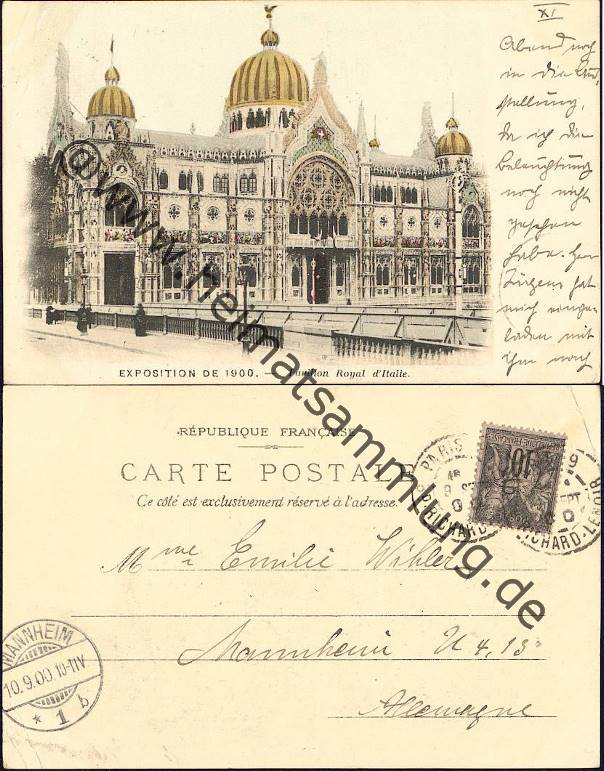 XI
Abend noch
in die Aus-
stellung,
da ich die
Beleuchtung
noch nicht
gesehen
habe. Herr
Jürgens hat
mich eingeladen mit
ihm nach
EXPOSITION DE 1900. — Pavillon Royal d'Italie.
www.heimatsammlung.de
RÉPUBLIQUE FRANÇAISE
CARTE POSTALE
Ce côté est exclusivement réservé à l'adresse.
PARIS
SEPT
RICHARD-LENOIR
10
Mme Emilie Wihler
Mannheim U 4, 13
Allemagne
MANNHEIM
10.9.00.10-11V
* 1 b